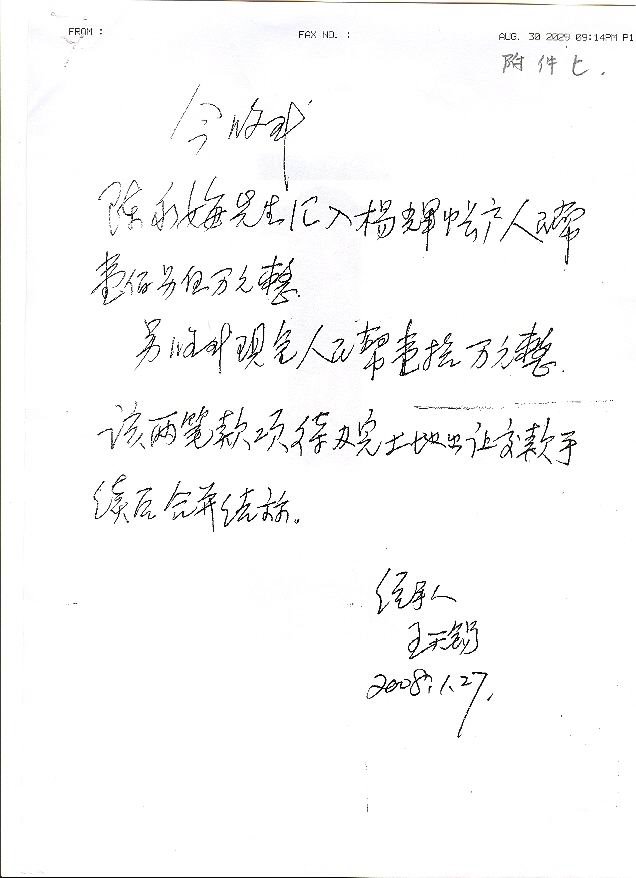 FROM :
FAX NO. :
AUG. 30 2029 09:14PM P1
附件七.
今收到
陈永海先生汇入杨辉帐户人民币
壹仟另伍万元整.
另收到现金人民币壹拾万元整.
该两笔款项待办完土地出让交款手
续后合并结算。
经手人
王天锡
2008.1.27.